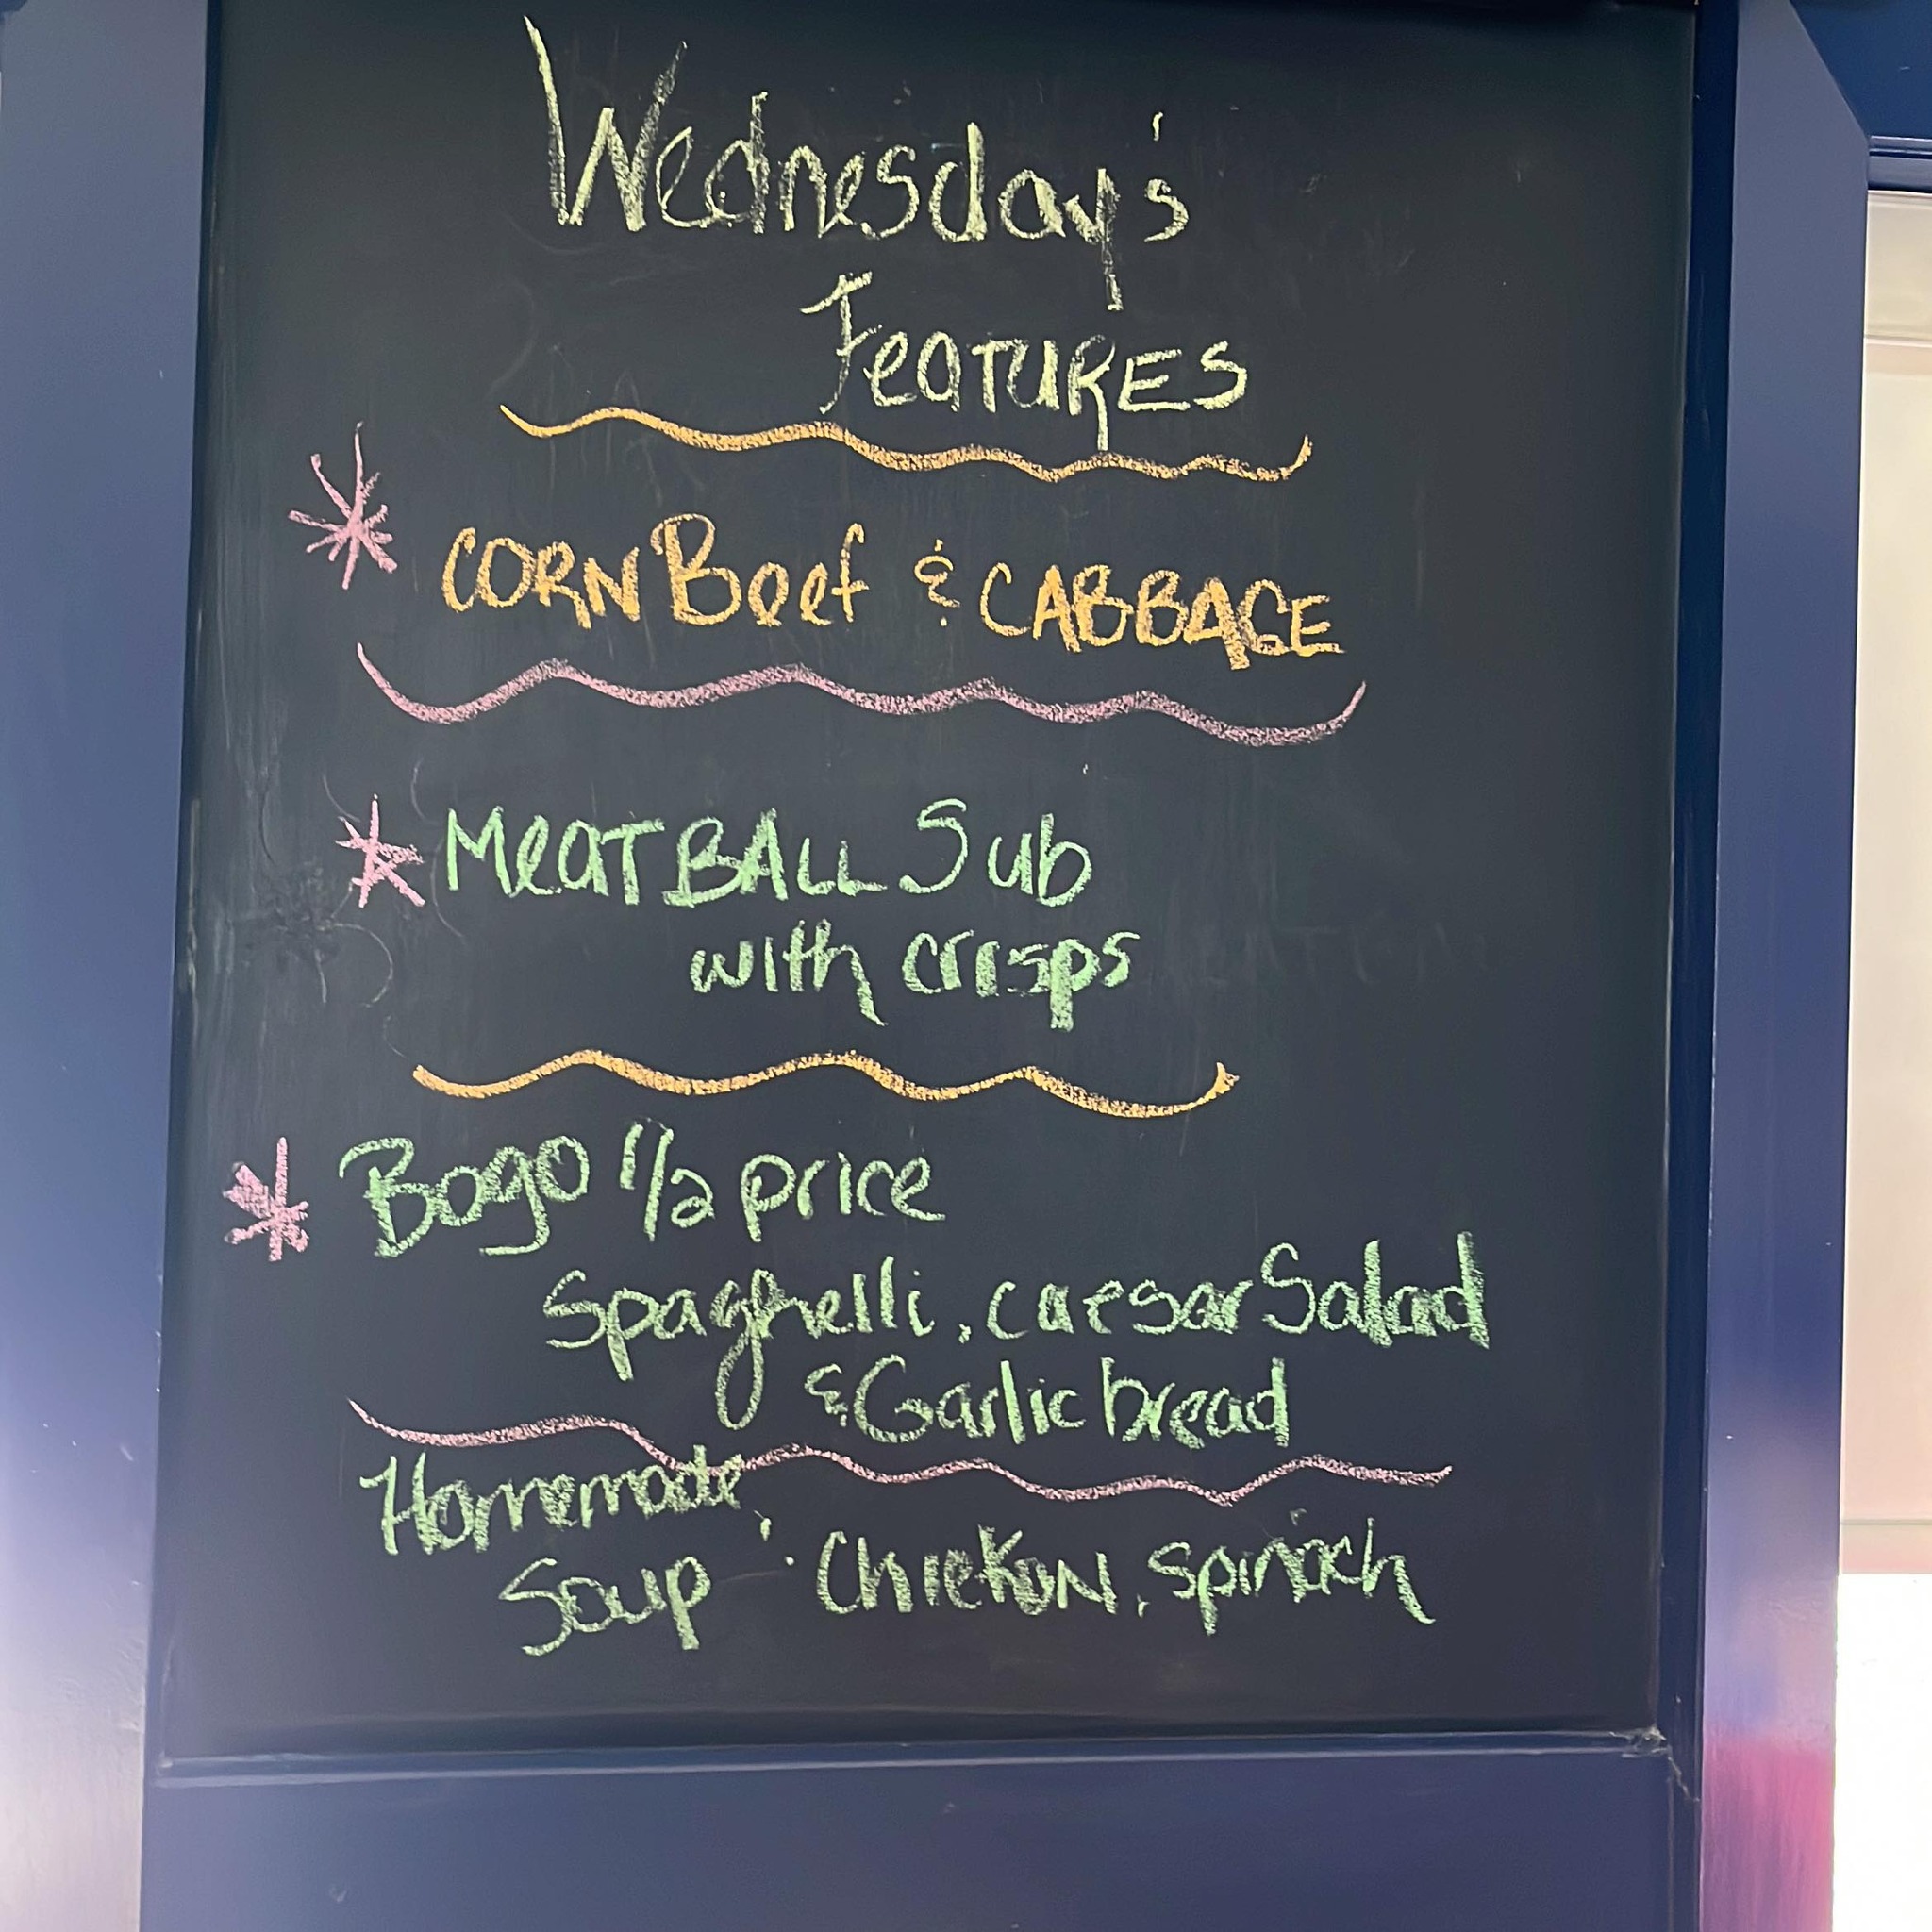 Wednesday's
FeaTURES
CORN Beef & CABBAGE
MeaTBALL Sub
with crisps
Bogo 1/2 price
Spaghetti, caesar Salad
& Garlic bread
Homemade
Soup : ChickeN, spinach